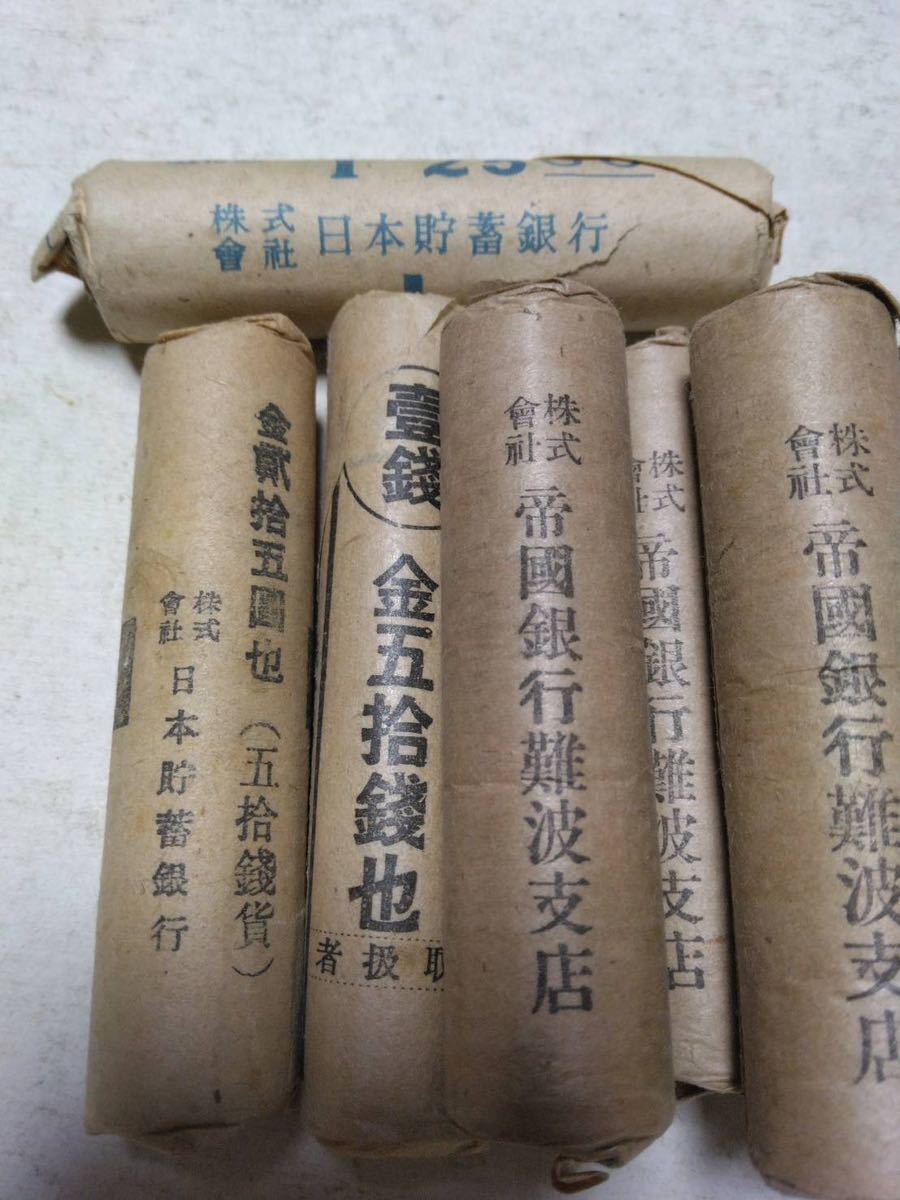 株式
會社
日本貯蓄銀行
金貳拾五圓也
(五拾錢貨)
株式
會社
日本貯蓄銀行
壹錢
金五拾錢也
取扱者
株式
會社
帝國銀行難波支店
株式
會社
帝國銀行難波支店
株式
會社
帝國銀行難波支店